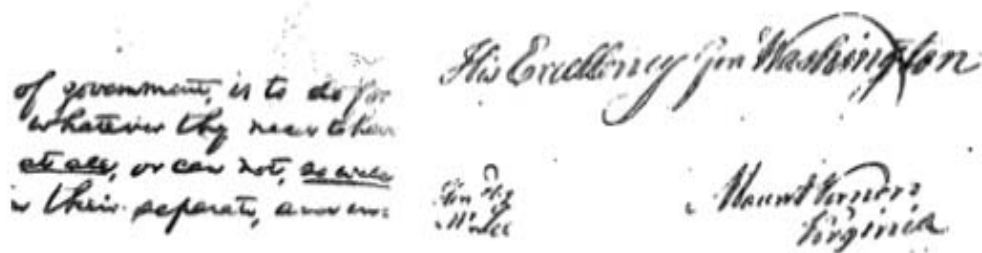 of government, is to do for
whatever they need to have
at all, or can not, so well
in their separate, and
His Excellency Gen Washington
Mount Vernon
Virginia